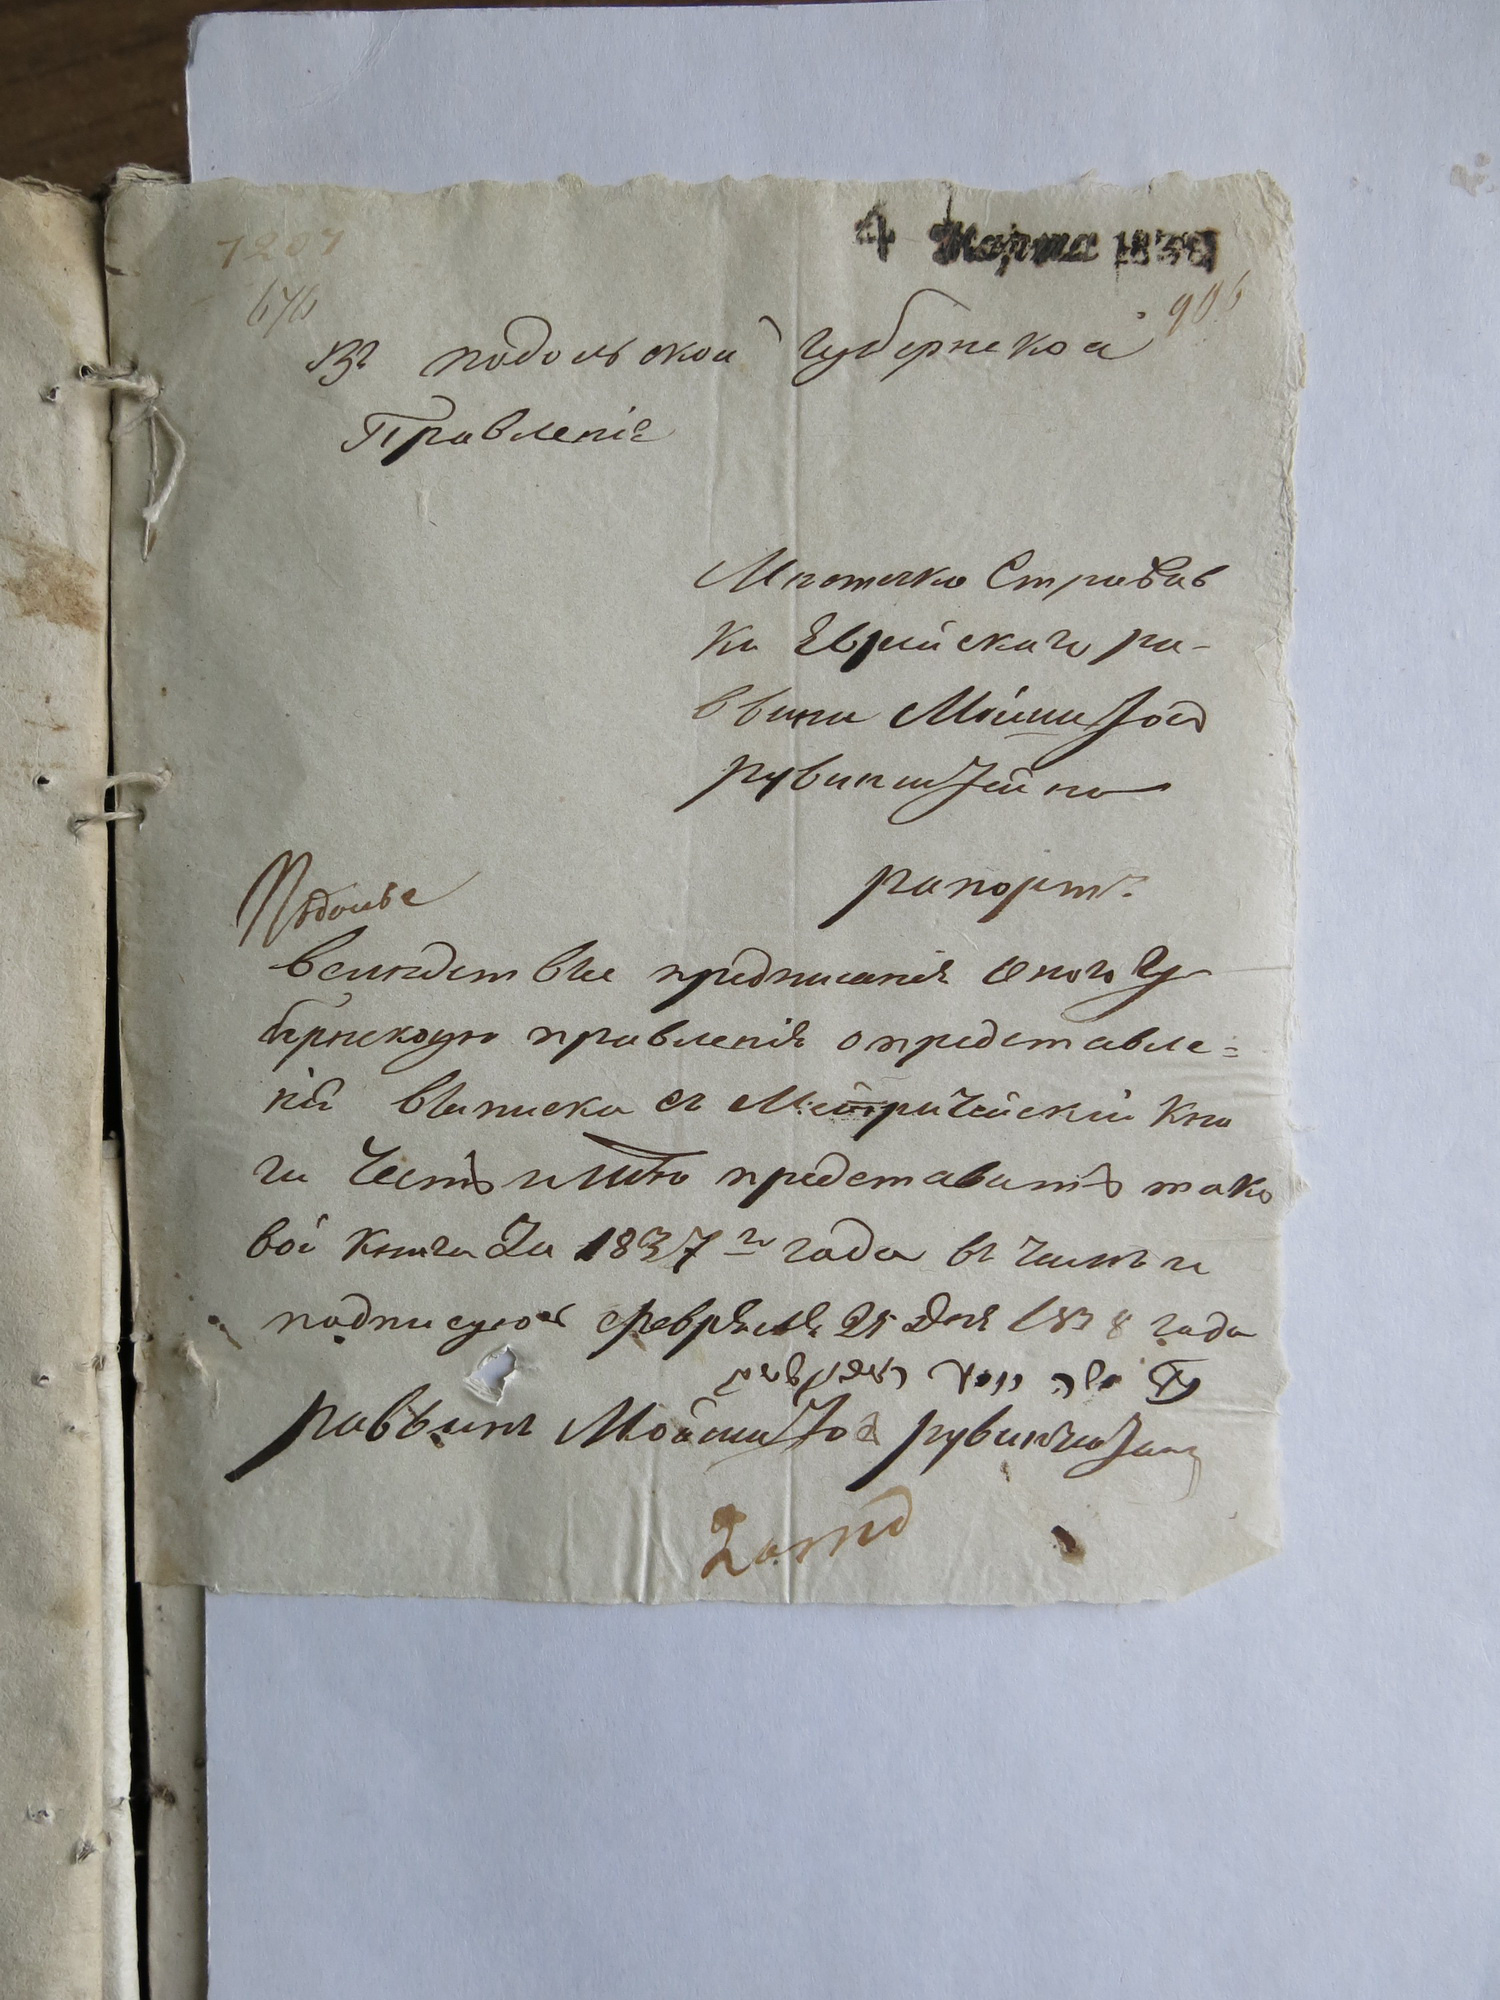 4 Марта 1838
1207
676
906
Въ подольской губернской
Правленіе
Мѣстечка Стравав
ки Еврейскаго ра-
ввина Мойши Іос
рувинштейна
рапортъ.
вслѣдствіе предписанія оного Гу
бернскому правленія о представле=
ній выписка съ Метрической Кни
ги честь имѣю представить тако
вой книги За 1837 го года въ чемъ и
подписуюсь февраля 25 дня 1838 года
משה יוסף
раввинъ Мойша Іос рувинштейн